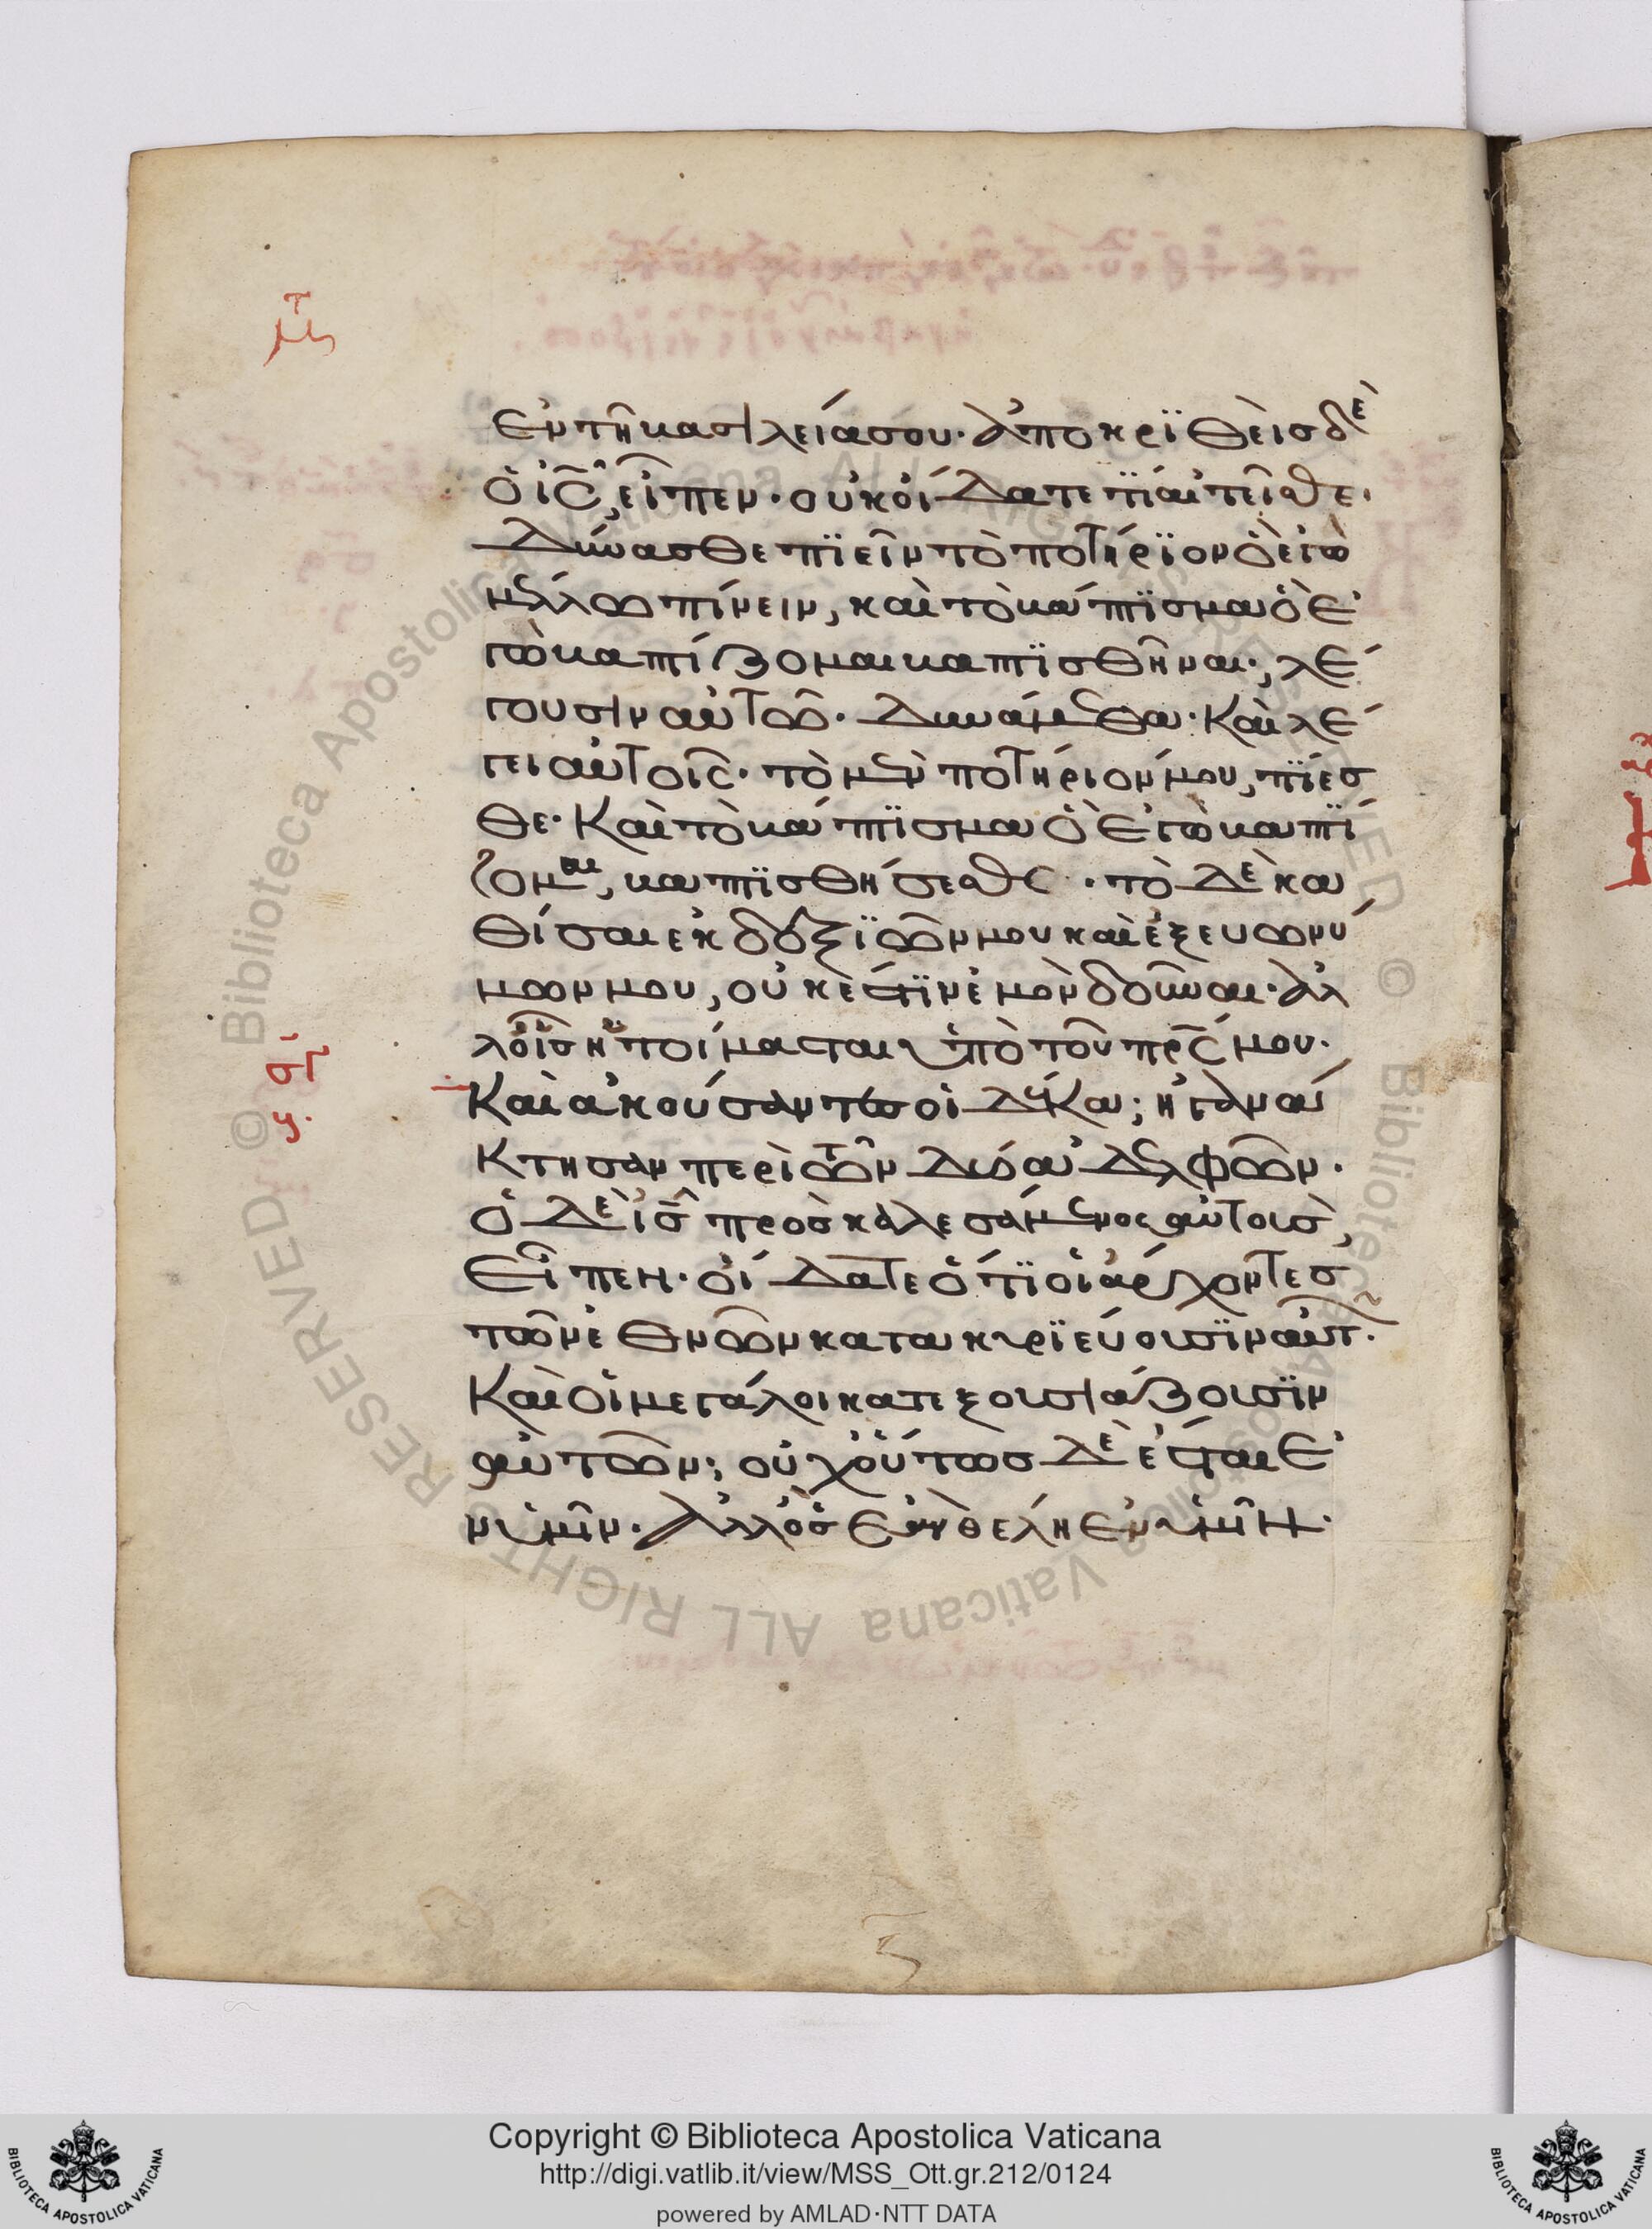 ἐν τῆ βασιλεία σου· ἀποκριθεὶς δὲ
ὁ ι̅ς̅, εἶπεν· οὐκ οἴδατε τί αἰτεῖσθε·
δύνασθε πιεῖν τὸ ποτήριον ὃ ἐγὼ
μέλλω πίνειν, καὶ τὸ βάπτισμα ὃ ἐ
γὼ βαπτίζομαι βαπτισθῆναι; λέ
γουσιν αὐτῶ· δυνάμεθα· Καὶ λέ
γει αὐτοῖς· τὸ μὲν ποτήριόν μου, πίεσ
θε· Καὶ τὸ βάπτισμα ὃ ἐγὼ βαπτί
ζομαι, βαπτισθήσεσθε· τὸ δὲ κα
θίσαι ἐκ δεξιῶν μου καὶ ἐξ εὐωνύ
μων μου, οὐκ ἔστιν ἐμὸν δοῦναι· ἀλ
λ' οἷς ἡτοίμασται ὑπὸ τοῦ π̅ρ̅ς̅ μου·
Καὶ ἀκούσαντες οἱ δέκα; ἠγανά
κτησαν περὶ τῶν δύο ἀδελφῶν·
ὁ δὲ ι̅ς̅ προσκαλεσάμενος αὐτοὺς,
εἶπεν· οἴδατε ὅτι οἱ ἄρχοντες
τῶν ἐθνῶν κατακυριεύουσιν αὐτ῀·
Καὶ οἱ μεγάλοι κατεξουσιάζουσιν
αὐτῶν; οὐχ οὕτως δὲ ἔσται ἐ
ν ὑμῖν· ἀλλ' ὃς ἐὰν θέλη ἐν ὑμῖν·
Copyright © Biblioteca Apostolica Vaticana
http://digi.vatlib.it/view/MSS_Ott.gr.212/0124
powered by AMLAD·NTT DATA